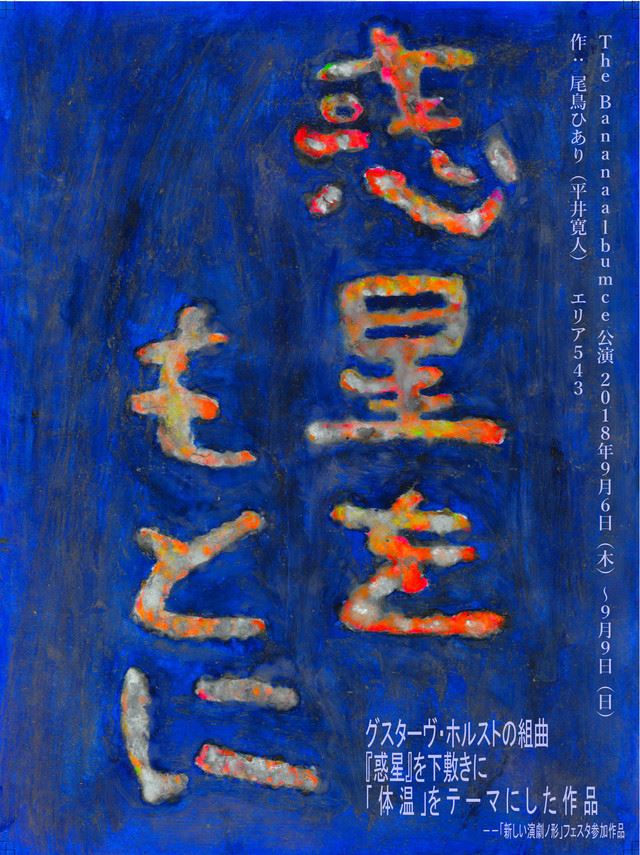 The Bananaalbumce公演 2018年9月6日（木）～9月9日（日）
作：尾鳥ひあり（平井寛人） エリア543
惑星を
もとに
グスターヴ・ホルストの組曲
『惑星』を下敷きに
「体温」をテーマにした作品
――「新しい演劇ノ形」フェスタ参加作品